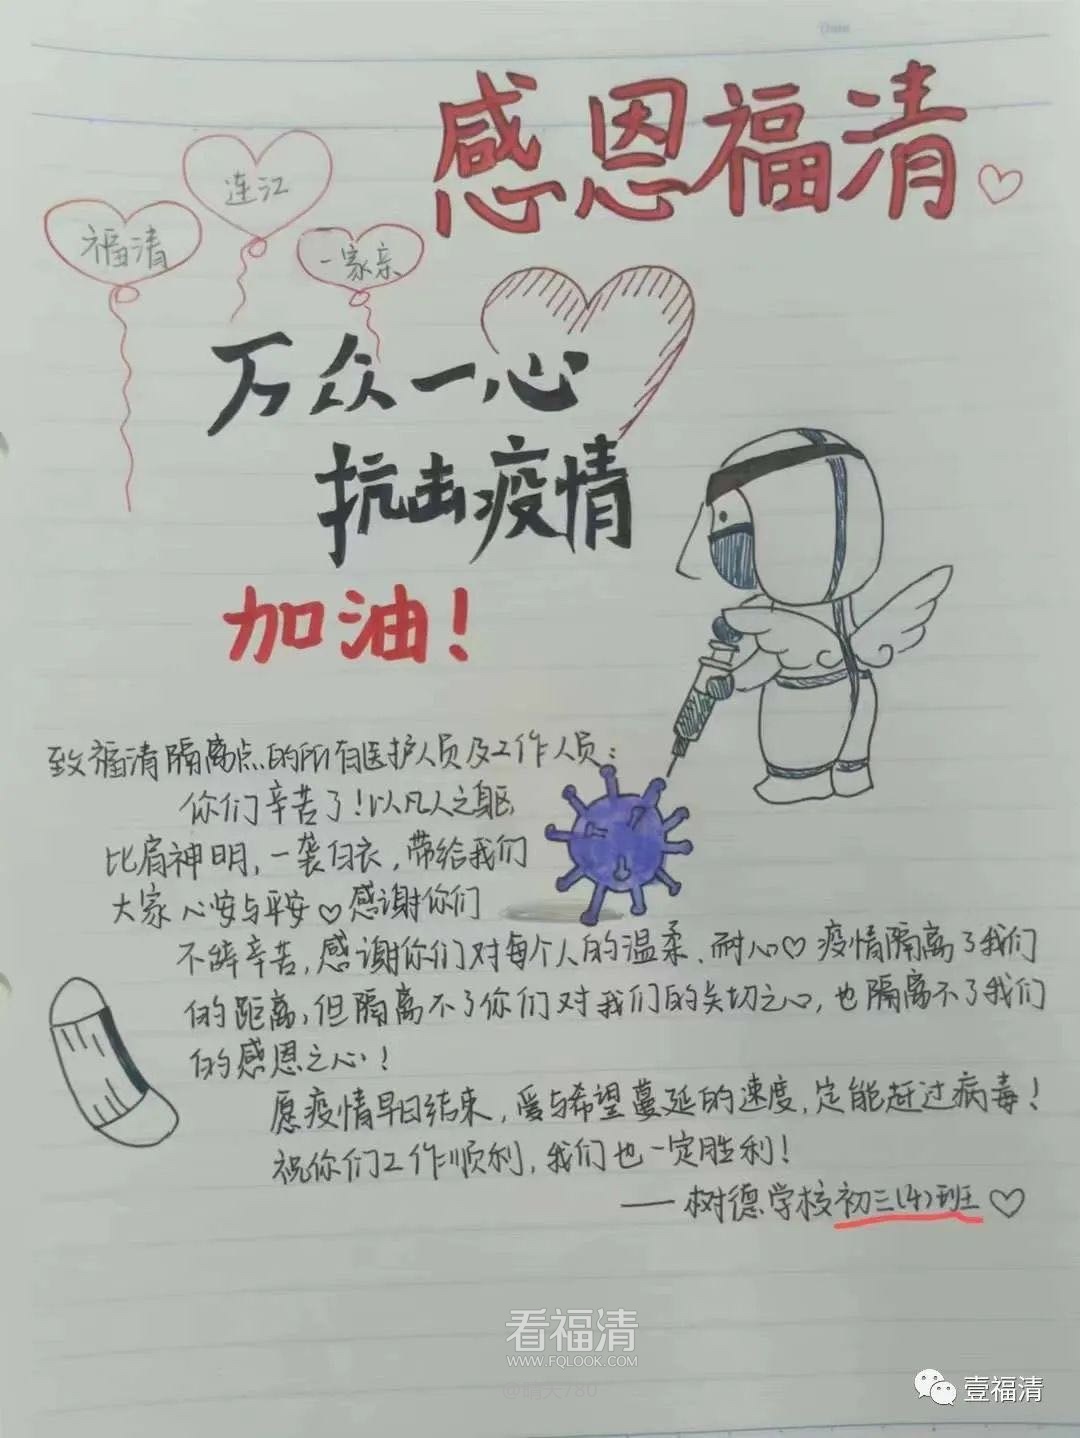 Date
感恩福清
连江
福清
一家亲
万众一心
抗击疫情
加油！
致福清隔离点的所有医护人员及工作人员：
你们辛苦了！以凡人之躯
比肩神明，一袭白衣，带给我们
大家心安与平安♡感谢你们
不辞辛苦，感谢你们对每个人的温柔、耐心♡疫情隔离了我们
的距离，但隔离不了你们对我们的关切之心，也隔离不了我们
的感恩之心！
愿疫情早日结束，爱与希望蔓延的速度，定能赶过病毒！
祝你们工作顺利，我们也一定胜利！
——树德学校初三(4)班♡
看福清
WWW.FQLOOK.COM
@晴天780
壹福清